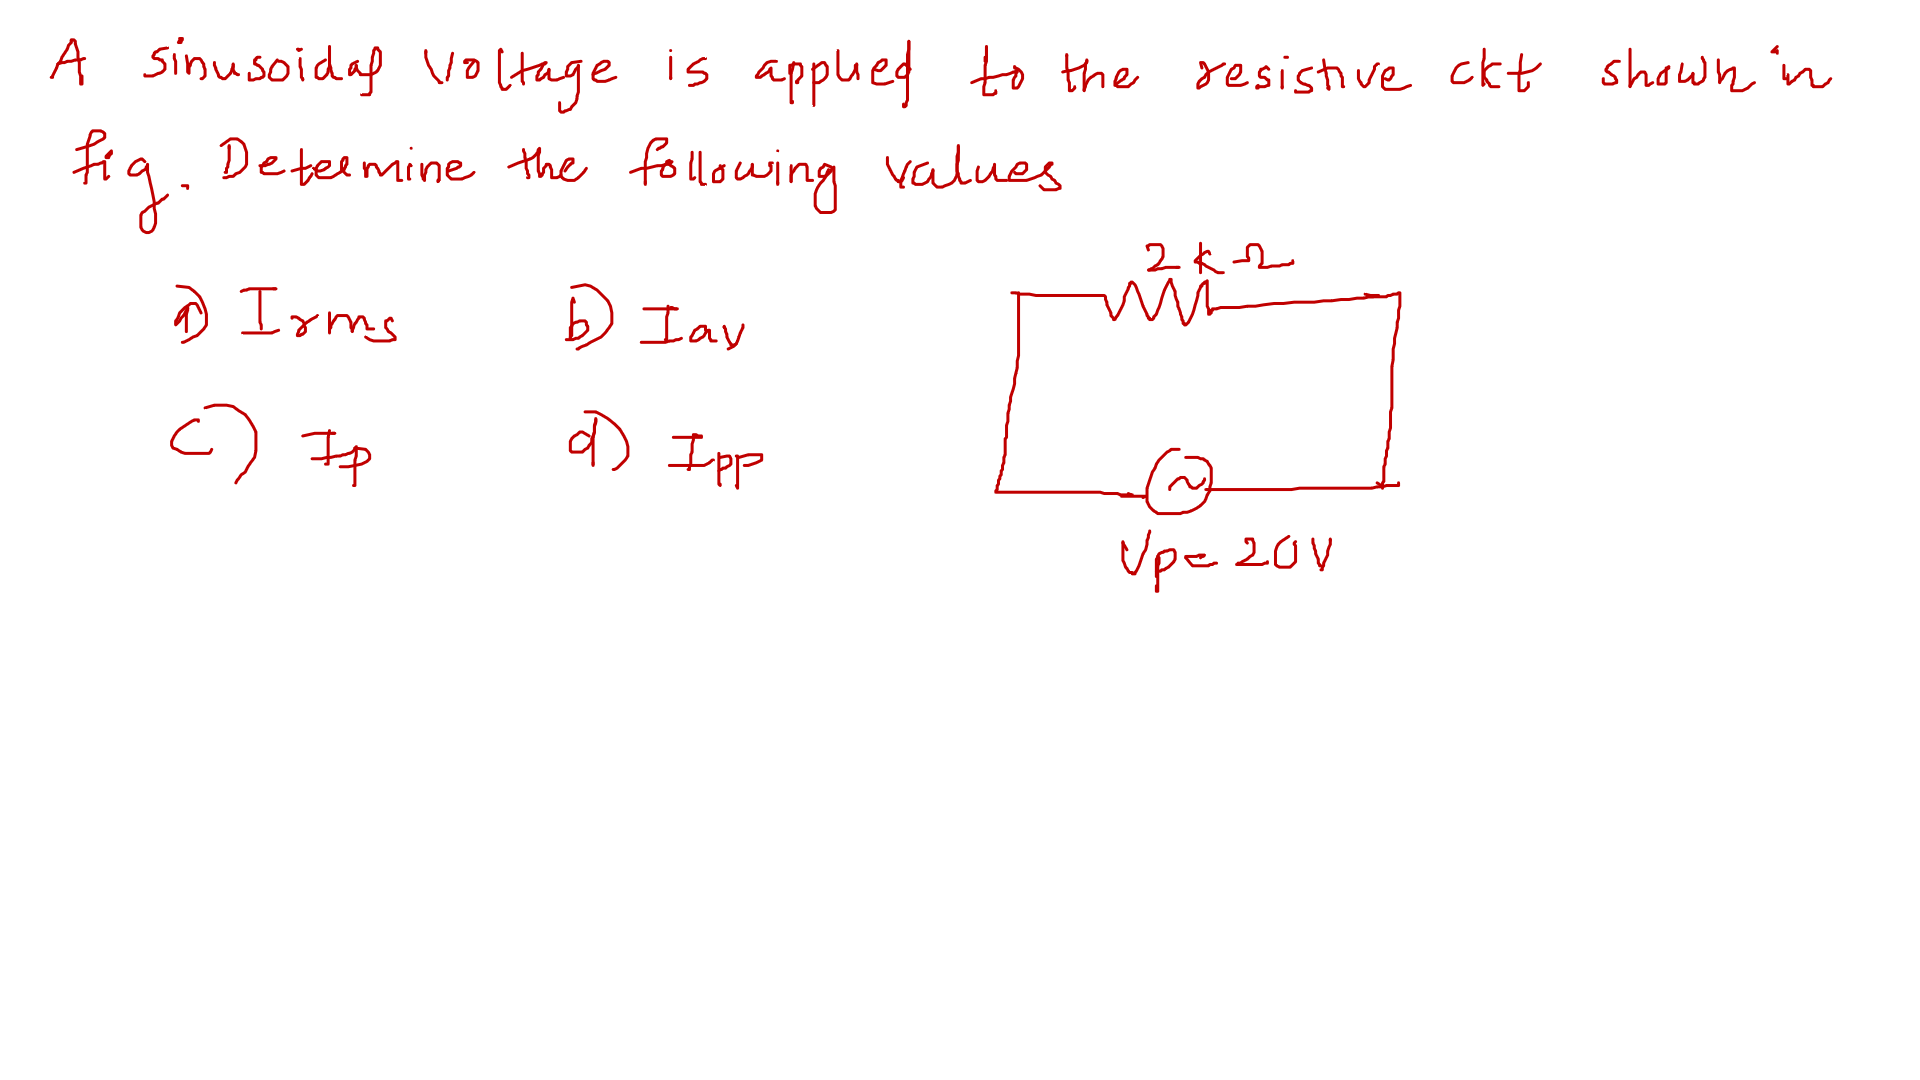 A sinusoidal voltage is applied to the resistive ckt shown in
fig. Determine the following values
2 k Ω
a) Irms b) Iav
c) Ip d) Ipp
Vp = 20V